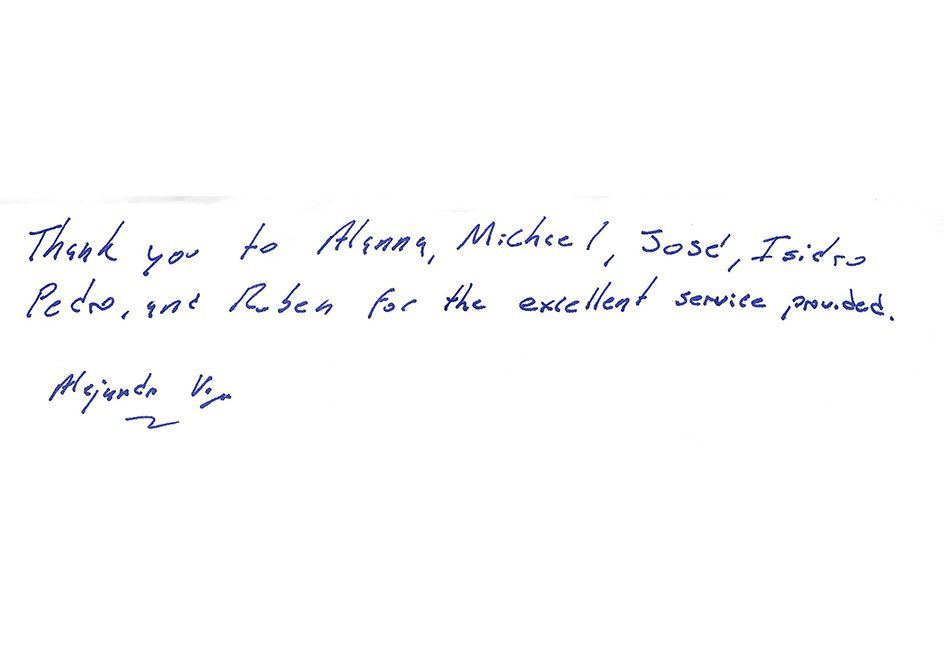 Thank you to Alanna, Michael, José, Isidro
Pedro, and Ruben for the excellent service provided.
Alejandro